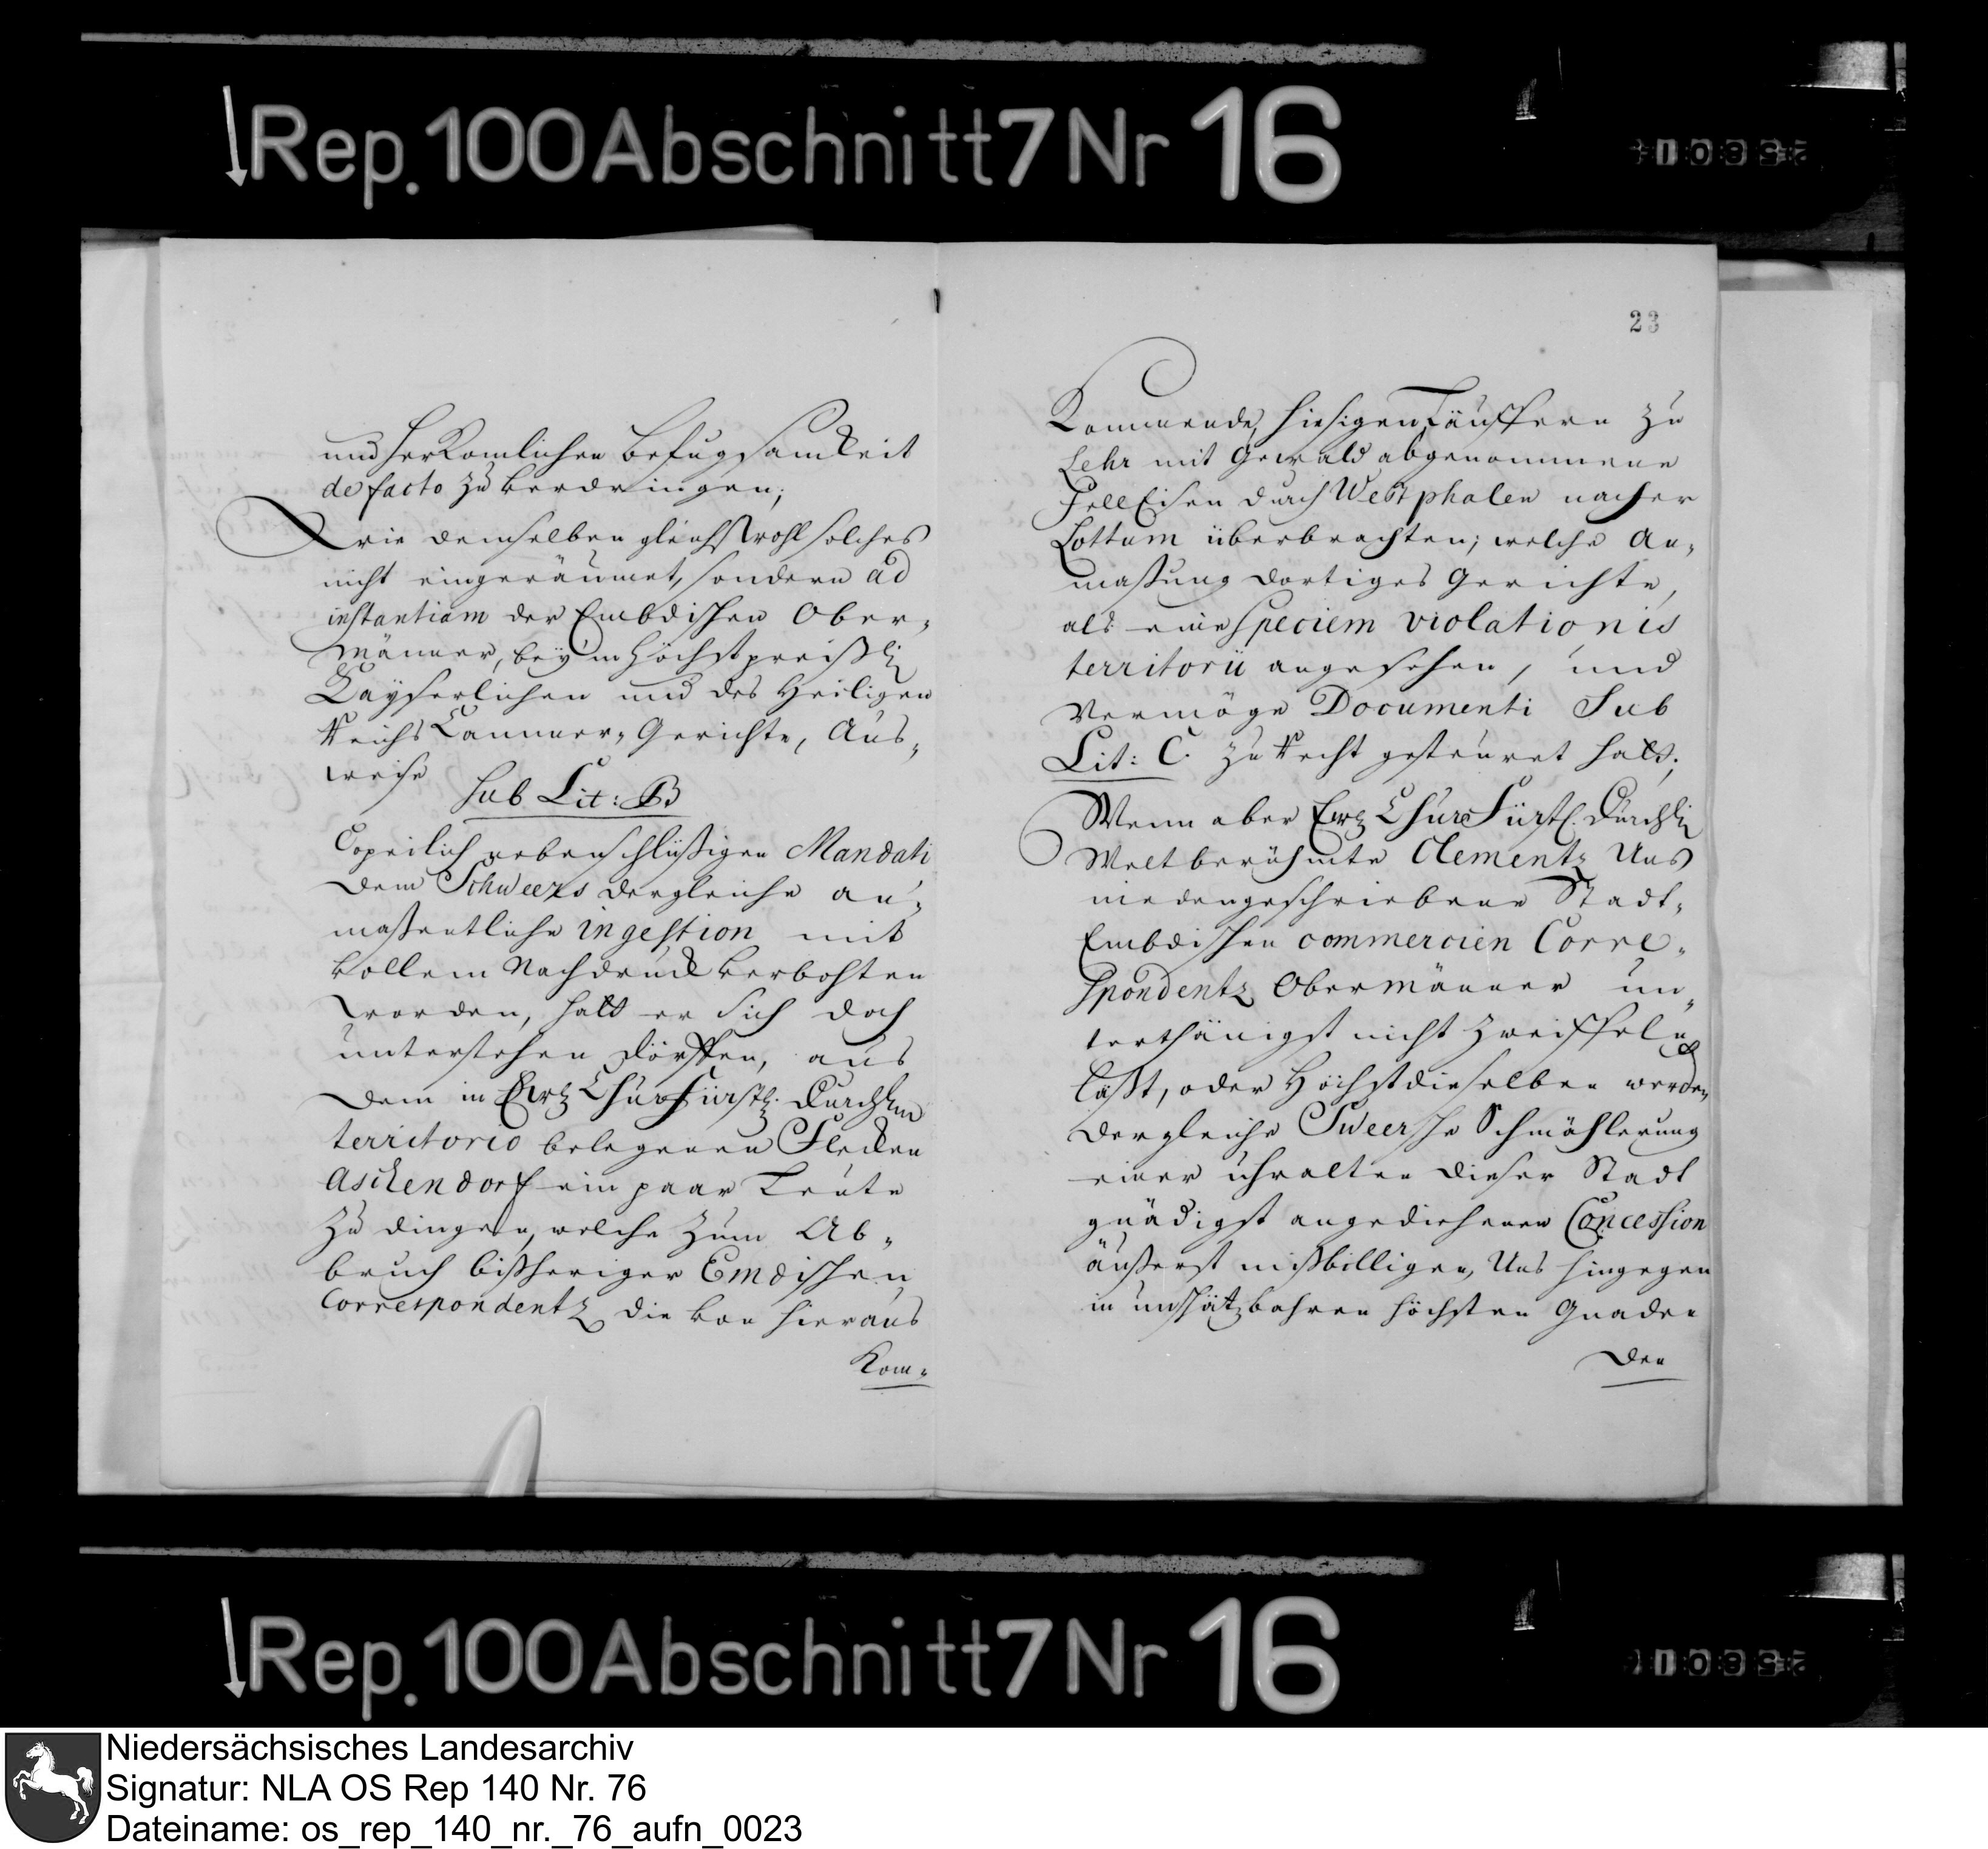 Rep. 100 Abschnitt 7 Nr 16
23
und herkomlichen Befugsamkeit
de facto zu verdringen;
Wie demselben gleichwohl solches
nicht eingeräumet, sondern ad
instantiam der Embdischen Ober-
männer, beÿm Höchstpreißl
Kaÿserlichen und des Heiligen
Reichs Cammer-Gerichte, Aus-
weise
sub Lit: B
Copeilich nebenschlüßigen Mandati
dem Schweers dergleiche an-
maßentliche ingestion mit
vollem Nachdruck verbohten
worden, hatt er sich doch
unterstehen dörffen, aus
dem in Ertz ChurFürstl. Durchl
territorio belegenen Flecken
Aschendorf ein paar Leute
zu dingen, welche zum Ab-
bruch bißheriger Emdischen
Correspondentz die von hieraus
Kom-
Kommende, hiesigen Läuffern zu
Lehr mit Gewald abgenommene
FellEisen durch Westphalen nacher
Lottum überbrachten; welche An-
maßung dortiges Gerichte,
als eine Speciem violationis
territorii angesehen, und
Vermöge Documenti Sub
Lit: C. zu Recht gesteuret hatt;
Wenn aber Ertz ChurFürstl. Durchl
Weltberühmte Clementz Uns
niedengeschriebene Stadt-
Embdischen commercien Corre-
spondentz Obermänner un-
terthänigst nicht zweiffeln
läßt, oder Höchstdieselben werden
dergleiche Sweersche Schmählerung
einer uhralten dieser Stadt
gnädigst angediehenen Concession
äußerst mißbilligen, Uns hingegen
in unschätzbahren höchsten Gnaden
den
Rep. 100 Abschnitt 7 Nr 16
Niedersächsisches Landesarchiv
Signatur: NLA OS Rep 140 Nr. 76
Dateiname: os_rep_140_nr._76_aufn_0023